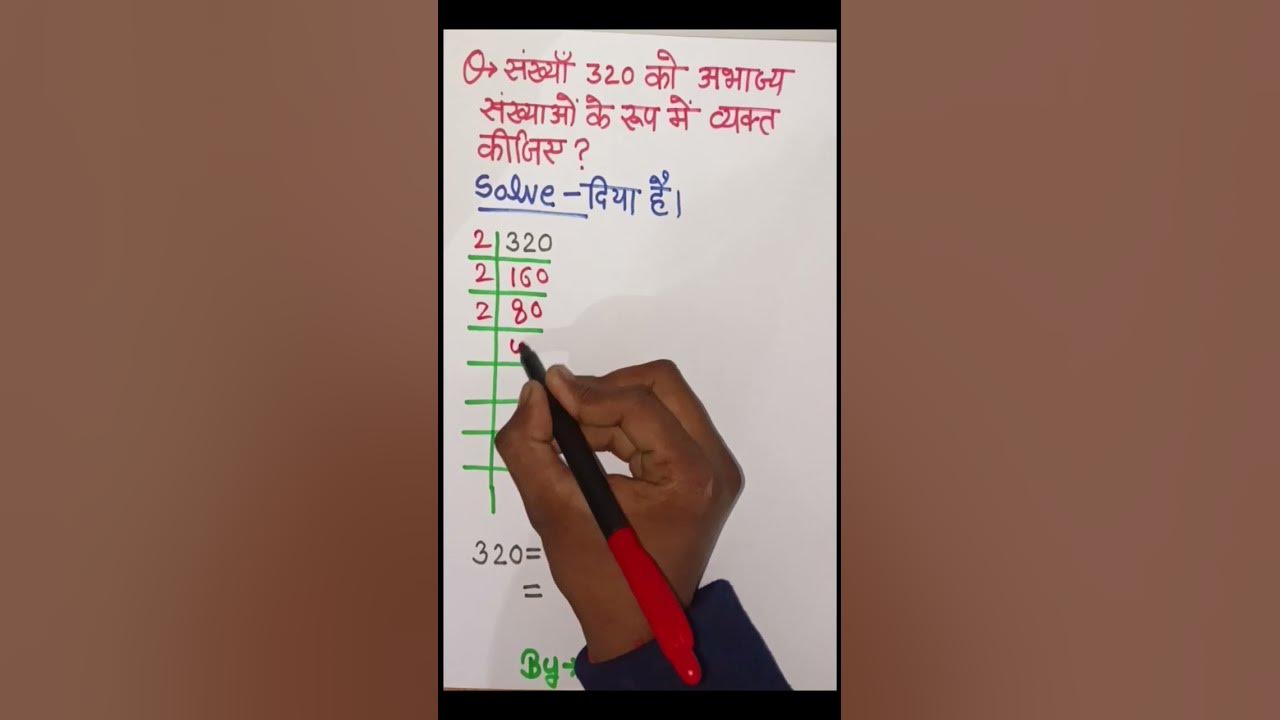 Q→ संख्याँ 320 को अभाज्य
संख्याओं के रूप में व्यक्त
कीजिए ?
Solve – दिया है।
2 | 320
2 | 160
2 | 80
320=
=
By→